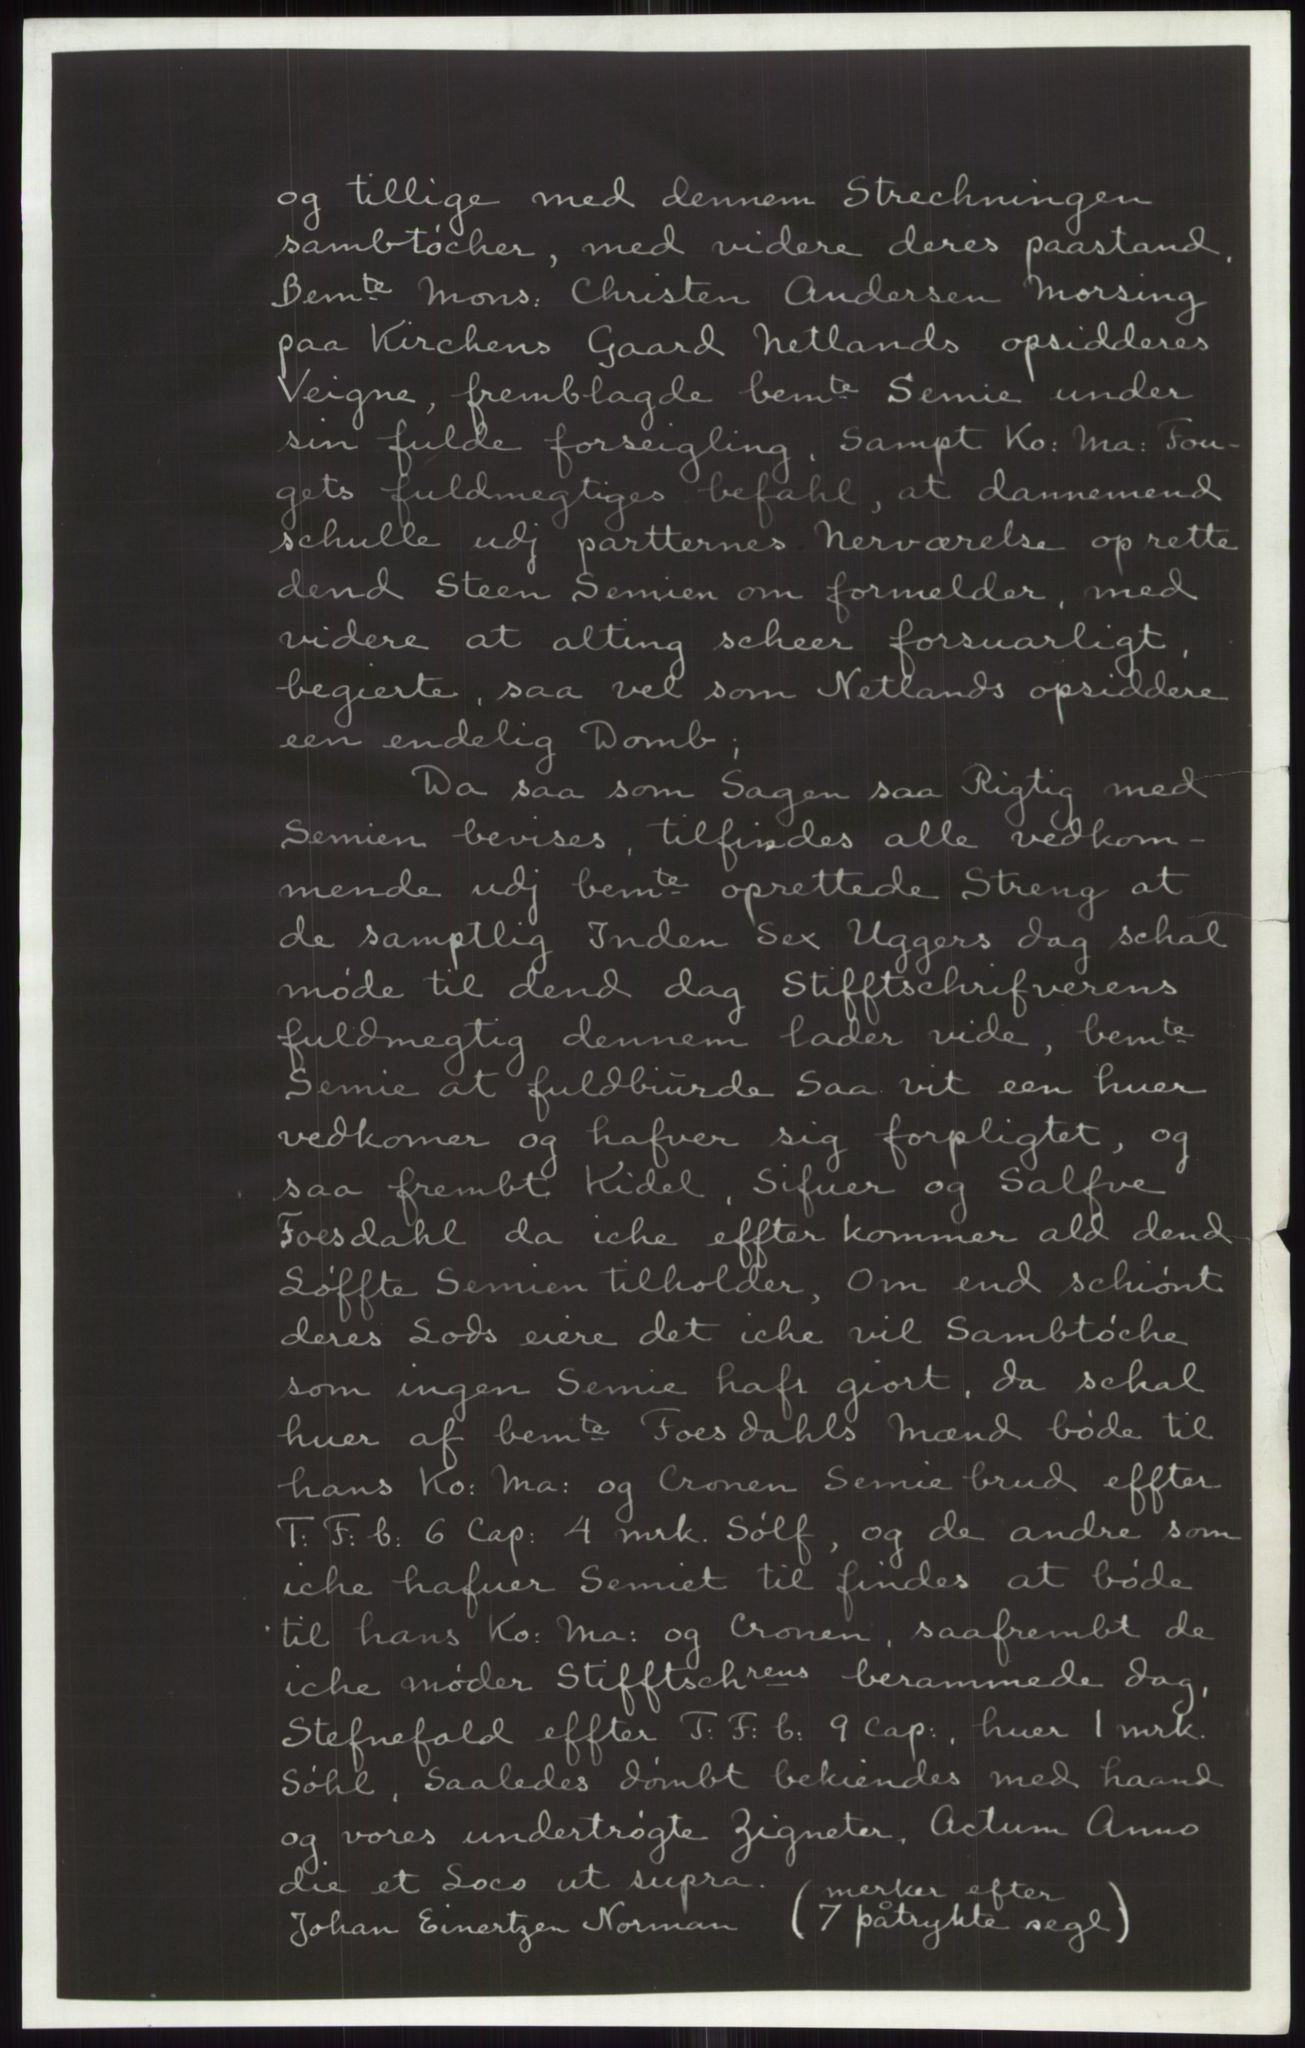 og tillige med dennem Strechningen
sambtøcher, med videre deres paastand.
Bemte Mons: Christen Andersen Morsing
paa Kirchens Gaard Netlands opsidderes
Veigne, fremblagde bemte Semie under
sin fulde forseigling, Sampt Ko: Ma: Fou-
gets fuldmegtiges befahl, at dannemend
schulle udj partternes Nerværelse oprette
dend Steen Semien om formelder, med
videre at alting scheer forsuarligt,
begierte, saa vel som Netlands opsiddere
een endelig Domb;
Da saa som Sagen saa Rigtig med
Semien bevises, tilfindes alle vedkom-
mende udj bemte oprettede Streng at
de samptlig Inden Sex Uggers dag schal
møde til dend dag Stifftschrifverens
fuldmegtig dennem lader vide, bemte
Semie at fuldbiurde Saa vit een huer
vedkomer og hafver sig forpligtet, og
saa frembt Kidel, Sifuer og Salfve
Foesdahl da iche effter kommer ald dend
Løffte Semien tilholder, Om end schiønt
deres Lods eiere det iche vil Sambtøche
som ingen Semie hafr giort, da schal
huer af bemte Foesdahls Mænd bøde til
hans Ko: Ma: og Cronen Semie brud effter
T: F: b: 6 Cap: 4 mrk. Sølf, og de andre som
iche hafuer Semiet til findes at bøde
til hans Ko: Ma: og Cronen, saafrembt de
iche møder Stifftschrens berammede dag,
Stefnefald effter T: F: b: 9 Cap:, huer 1 mrk.
Søhl, Saaledes dømbt bekiendes med haand
og vores undertrøgte Zigneter, Actum Anno
die et Loco ut supra.
Johan Einertzen Norman (merker efter
7 påtrykte segl)